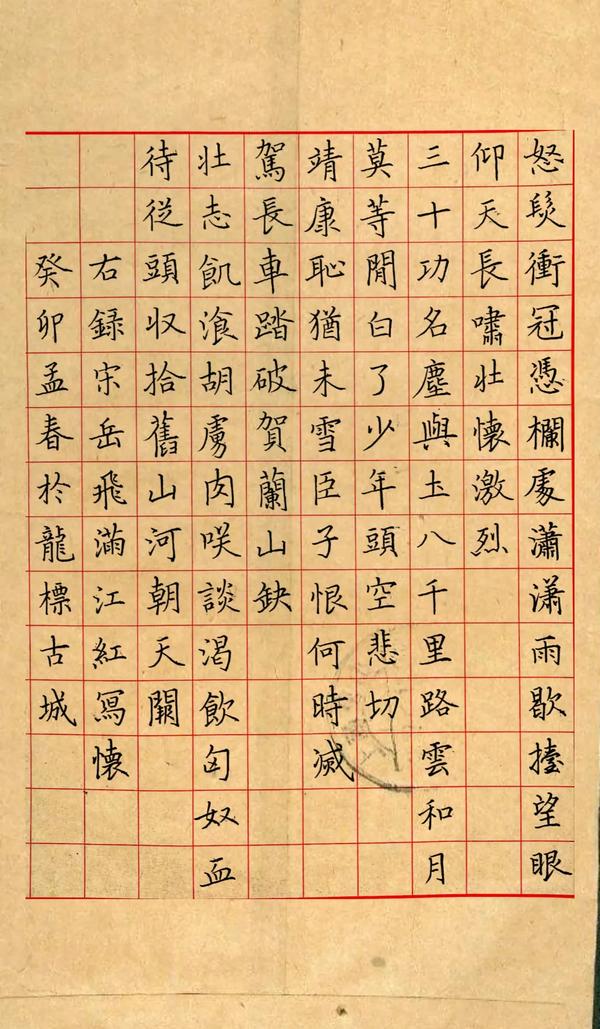 怒髮衝冠憑欄處瀟瀟雨歇擡望眼
仰天長嘯壯懷激烈
三十功名塵與土八千里路雲和月
莫等閒白了少年頭空悲切
靖康恥猶未雪臣子恨何時滅
駕長車踏破賀蘭山缺
壯志飢飡胡虜肉咲談渴飲匈奴血
待從頭収拾舊山河朝天闕
右録宋岳飛滿江紅寫懷
癸卯孟春於龍標古城